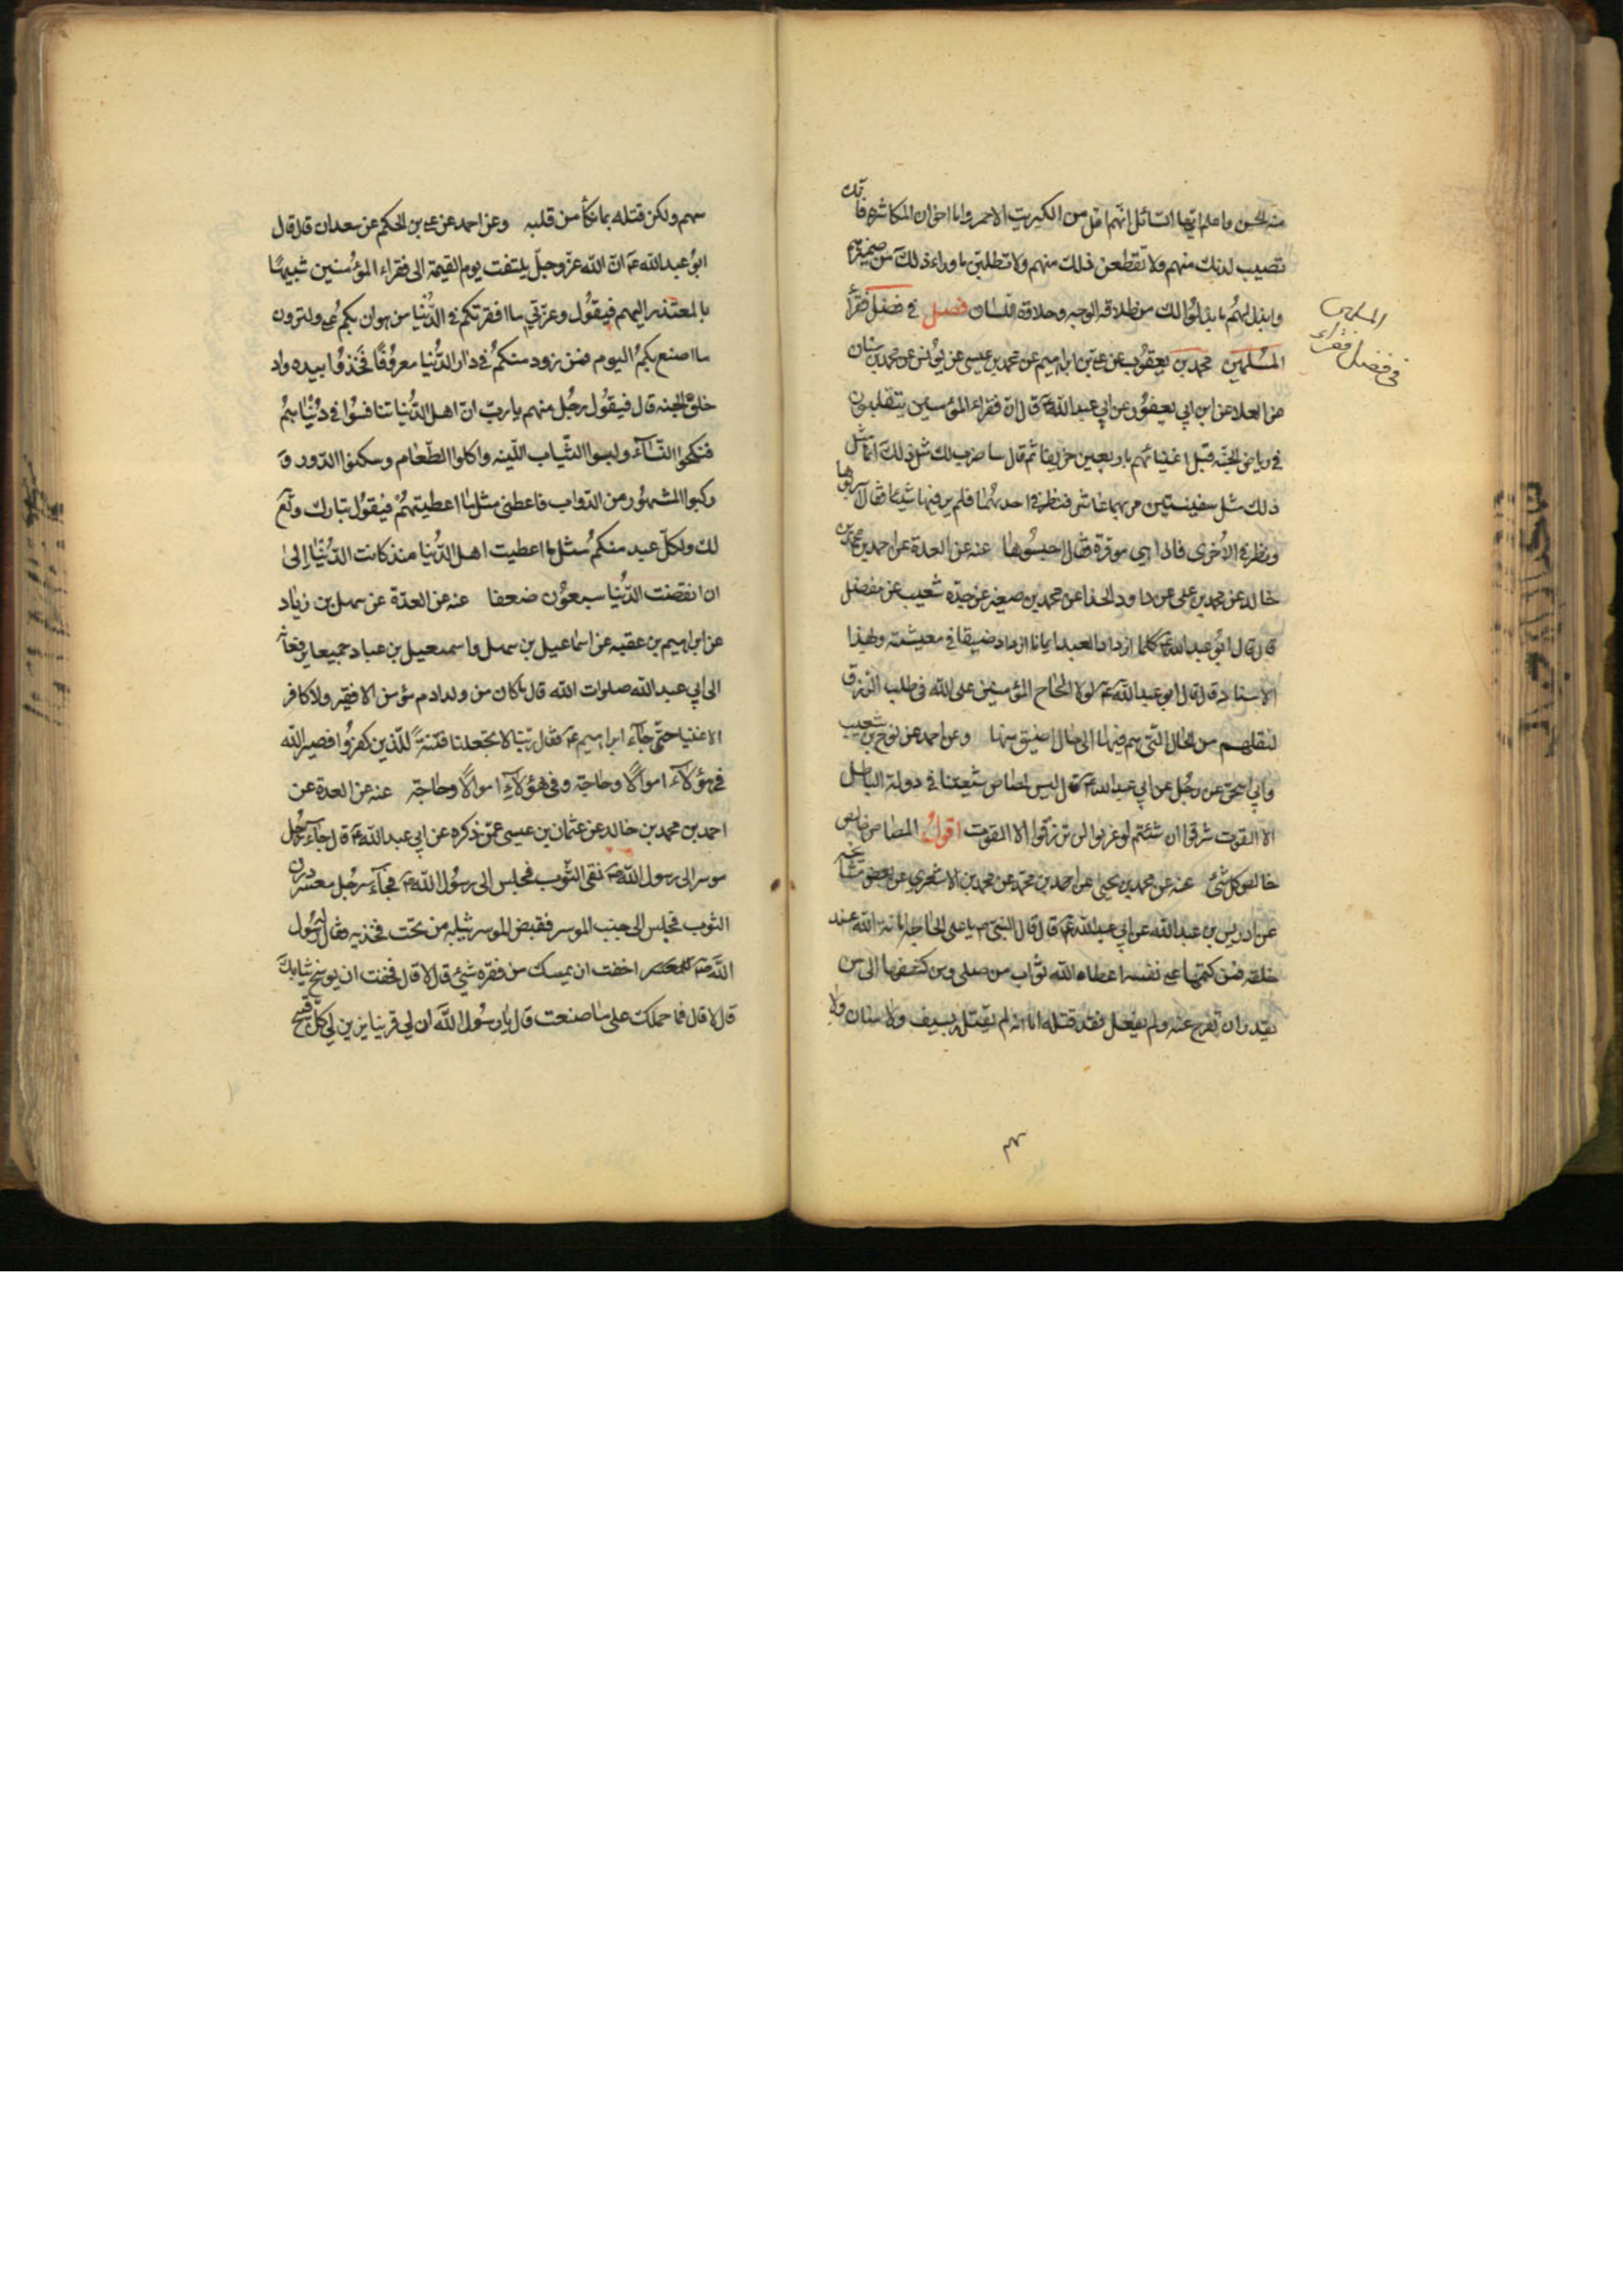 منه الحسن واعلم ايّها السّائل انّهم اقل من الكبريت الاحمر واما اخوان المكاشرة فانّك
تصيب لذتك منهم ولا تقطعن ذلك منهم ولا تطلبن ما وراء ذلك من ضميرهم
وابذل لهم ما بذلوا لك من طلاقة الوجه وحلاوة اللسان فصل في فضل فقراء
المسلمين محمد بن يعقوب عن علي بن ابراهيم عن محمد بن عيسى عن يونس عن محمد بن سنان
عن العلا عن ابن ابي يعفور عن ابي عبد الله ع قال انّ فقراء المؤمنين يتقلبون
في رياض الجنّة قبل اغنيائهم باربعين خريفا ثم قال ساضرب لك مثل ذلك انما مثل
ذلك مثل سفينتين مر بهما عاشر فنظر في احديهما فلم ير فيها شيئا فقال اسربوها
ونظر في الاخرى فاذا هي موقرة فقال احبسوها عنه عن العدة عن احمد بن محمد بن
خالد عن محمد بن علي عن داود الحذا عن محمد بن صغير عن جده شعيب عن مفضل
قال قال ابو عبد الله ع كلما ازداد العبد ايمانا ازداد ضيقا في معيشته وبهذا
الاسناد قال قال ابو عبد الله ع لولا الحاح المؤمنين على الله في طلب الرزق
لنقلهم من الحال التي هم فيها الى حال اضيق منها وعن احمد عن نوح بن شعيب
وابي اسحق عن رجل عن ابي عبد الله ع قال ليس لمصاص شيعتنا في دولة الباطل
الا القوت شرقوا ان شئتم او غربوا لن ترزقوا الا القوت اقول المصاص خالص
خالص كل شئ عنه عن محمد بن يحيى عن احمد بن محمد عن محمد بن الاشعري عن بعض مشايخه
عن ادريس بن عبد الله عن ابي عبد الله ع قال قال النبي ص يا علي الحاجة امانة الله عند
خلقه فمن كتمها على نفسه اعطاه الله ثواب من صلى ومن كشفها الى من
يقدر ان يفرج عنه ولم يفعل فقد قتله اما انه لم يقتله بسيف ولا سنان ولا
في فضل فقراء
المسلمين
سهم ولكن قتله بما نكأ من قلبه وعن احمد عن علي بن الحكم عن سعدان قال قال
ابو عبد الله ع انّ الله عزّ وجلّ يلتفت يوم القيمة الى فقراء المؤمنين شبيها
بالمعتذر اليهم فيقول وعزتي ما افقرتكم في الدّنيا من هوان بكم علي ولترون
ما اصنع بكم اليوم فمن زود منكم في دار الدّنيا معروفا فخذوا بيده واد
خلوه الجنة قال فيقول رجل منهم يا ربّ انّ اهل الدّنيا تنافسوا في دنياهم
فنكحوا النّساء ولبسوا الثّياب اللّينه واكلوا الطّعام وسكنوا الدّور و
ركبوا المشهور من الدّواب فاعطني مثل ما اعطيتهم فيقول تبارك وتع
لك ولكلّ عبد منكم مثل ما اعطيت اهل الدّنيا منذ كانت الدّنيا الى
ان انقضت الدّنيا سبعون ضعفا عنه عن العدّة عن سهل بن زياد
عن ابراهيم بن عقبه عن اسماعيل بن سهل واسمعيل بن عباد جميعا يرفعانه
الى ابي عبد الله صلوات الله قال ما كان من ولد ادم مؤمن الا فقير ولا كافر
الا غنيا حتى جآء ابراهيم ع فقال ربّنا لا تجعلنا فتنةً للّذين كفروا فصير الله
في هؤلآء اموالًا وحاجة وفي هؤلآء اموالًا وحاجة عنه عن العدة عن
احمد بن محمد بن خالد عن عثمان بن عيسى عمّن ذكره عن ابي عبد الله ع قال جآء رجل
موسر الى رسول الله ص نقي الثّوب فجلس الى رسول الله ص فجآء رجل معسر درن
الثوب فجلس الى جنب الموسر فقبض الموسر ثيابه من تحت فخذيه فقال له رسول
الله ص اخفت ان يمسك من فقره شئ قال لا قال فخفت ان يوسخ ثيابك
قال لا قال فما حملك على ما صنعت قال يا رسول الله ان لي قرينا يزين لي كل قبيح